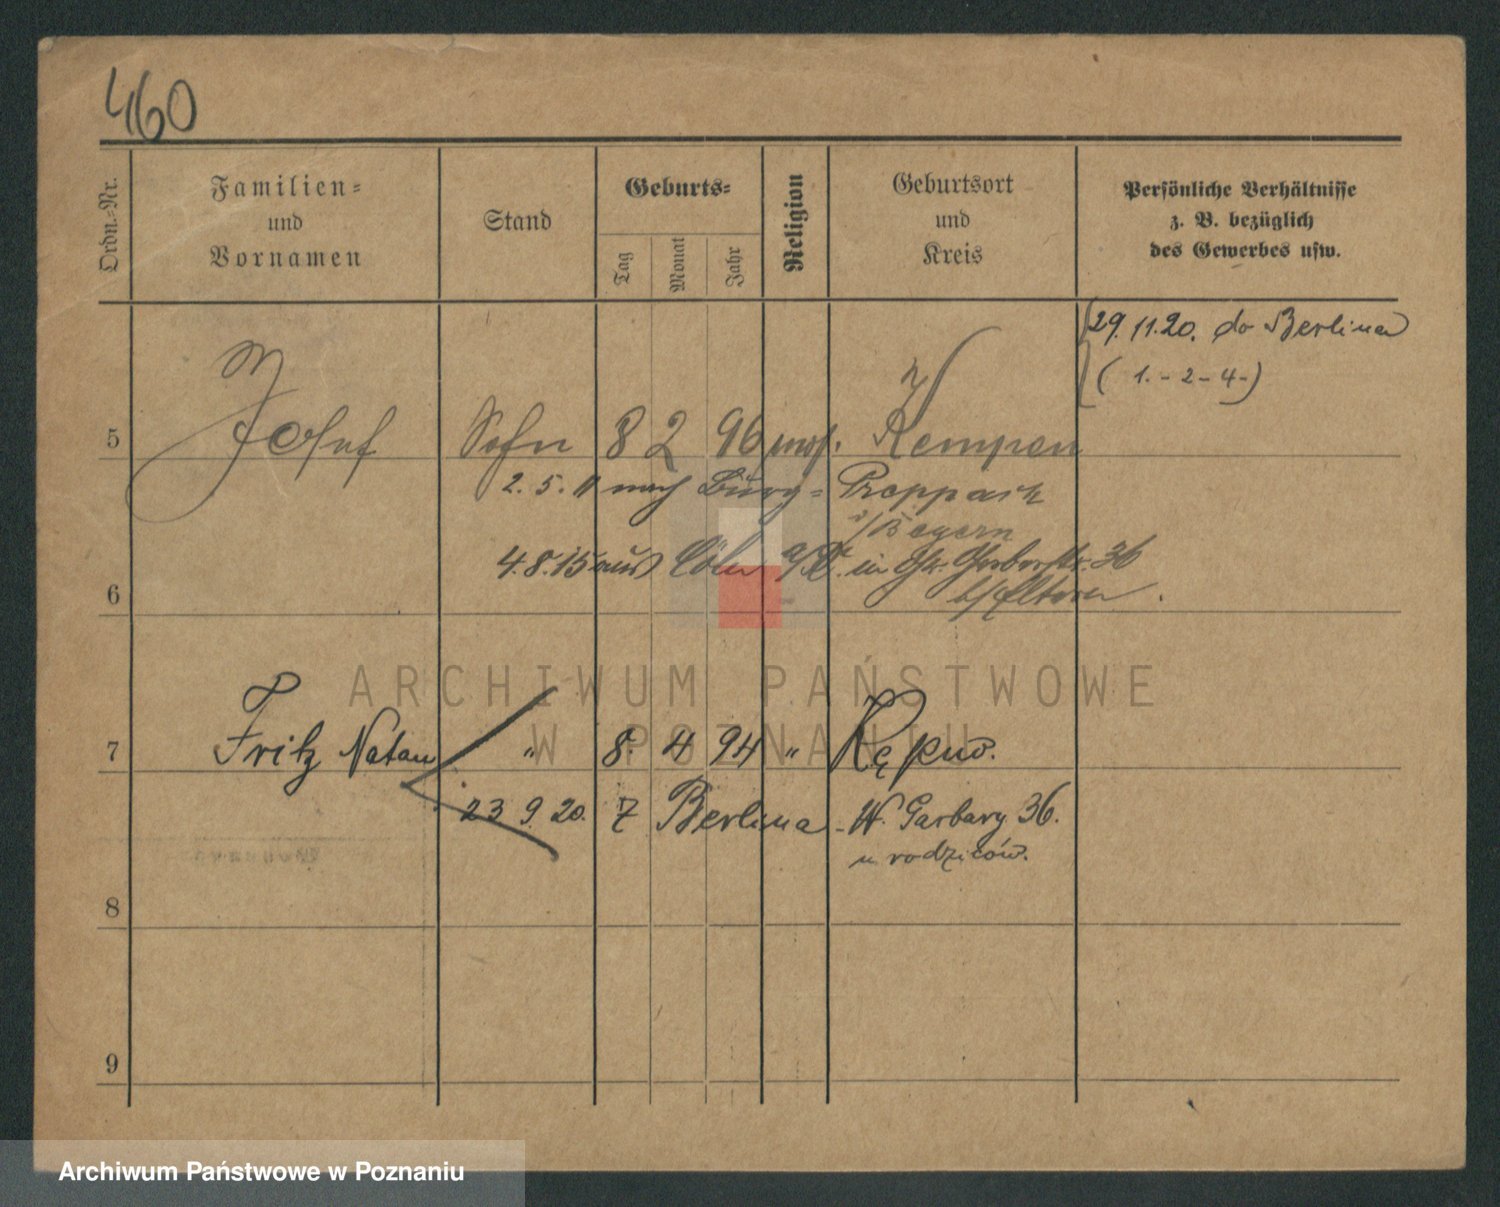 460
Ordn.-Nr.
Familien-
und
Vornamen
Stand
Geburts-
Tag
Monat
Jahr
Religion
Geburtsort
und
Kreis
Persönliche Verhältnisse
z. B. bezüglich
des Gewerbes usw.
29. 11. 20. do Berlina
( 1. - 2 - 4 - )
5 Josef Sohn 8 2 96 mos. Kempen
2. 5. 11 nach Burg-Preppach
i/Bayern
6 4. 8. 15 aus Cöln a/R. in Gr. Gerberstr. 36
b/Eltern.
ARCHIWUM PAŃSTWOWE
W POZNANIU
7 Fritz Natan " 8. 4 94 " Kępno.
23 9. 20. z Berlina - W. Garbary 36.
u rodziców.
8
9
Archiwum Państwowe w Poznaniu